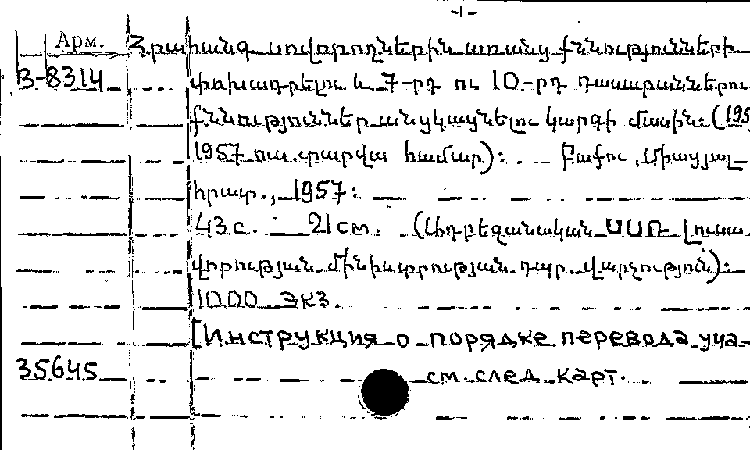 -1-
Арм.
Հրահանգ սովորողներին առանց քննությունների
В-8314 փոխադրելու և 7-րդ ու 10-րդ դասարաններու
քննություններ անցկացնելու կարգի մասին: (195
1957 ուս. տարվա համար): Բաքու, Միացյալ
հրատ., 1957:
43 с. 21 см. (Ադրբեջանական ՍՍՌ Լուսա
վորության մինիստրության դպր. վարչություն):
1000 экз.
[Инструкция о порядке перевода уча-
35645 см. след. карт.